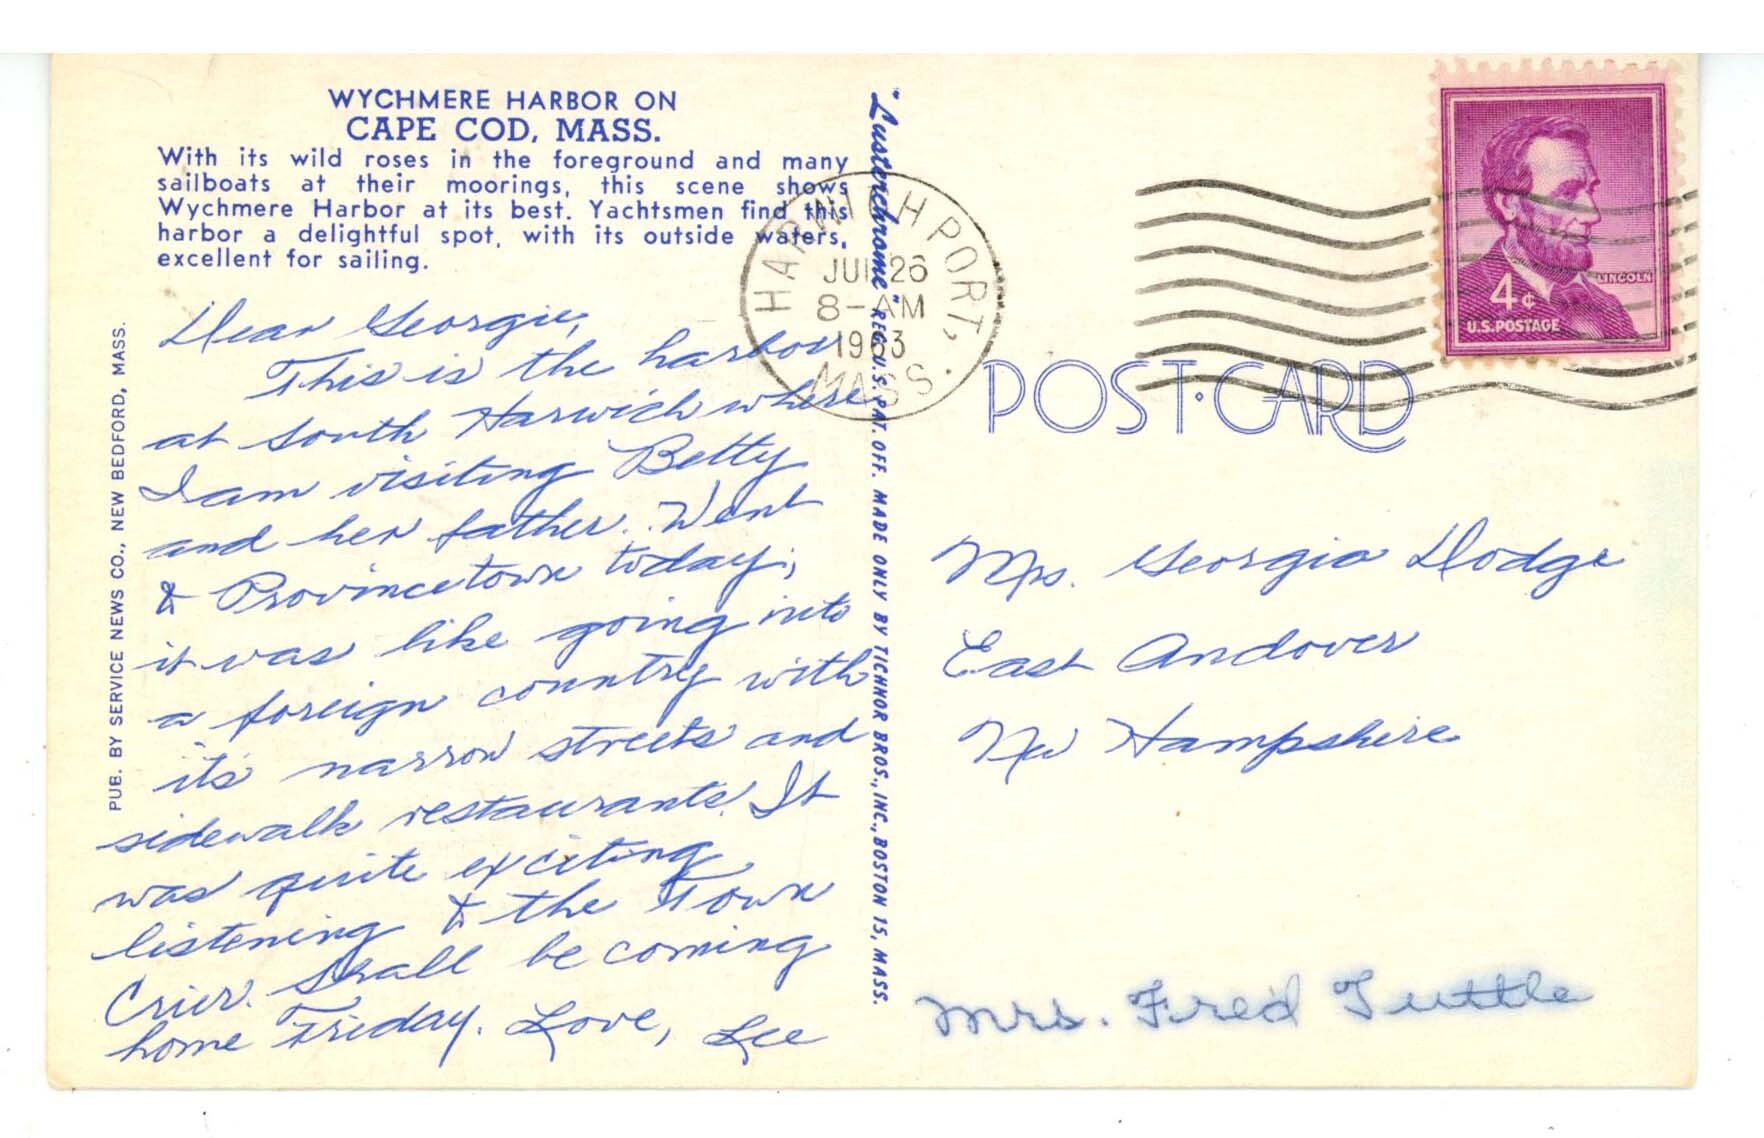 WYCHMERE HARBOR ON
CAPE COD, MASS.
With its wild roses in the foreground and many
sailboats at their moorings, this scene shows
Wychmere Harbor at its best. Yachtsmen find this
harbor a delightful spot, with its outside waters,
excellent for sailing.
Dear Georgie,
This is the harbor
at South Harwich where
I am visiting Betty
and her father. Went
to Provincetown today;
it was like going into
a foreign country with
it's narrow streets and
sidewalk restaurants. It
was quite exciting
listening to the Town
Crier. Shall be coming
home Friday. Love, Lee
PUB. BY SERVICE NEWS CO., NEW BEDFORD, MASS.
"Lusterchrome" REG. U.S. PAT. OFF. MADE ONLY BY TICHNOR BROS., INC., BOSTON 15, MASS.
HARWICH PORT,
JUN 26
8-AM
1963
MASS.
LINCOLN
4¢
U.S. POSTAGE
POST CARD
Mrs. Georgia Dodge
East Andover
New Hampshire
Mrs. Fred Tuttle